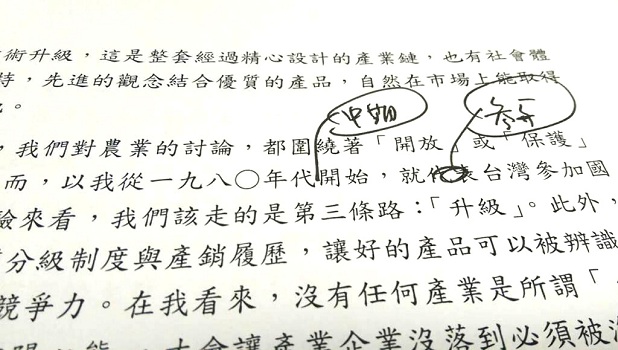 術升級，這是整套經過精心設計的產業鏈，也有社會體
持，先進的觀念結合優質的產品，自然在市場上能取得
。
，我們對農業的討論，都圍繞著「開放」或「保護」
而，以我從一九八〇年代開始，就代表台灣參加國
驗來看，我們該走的是第三條路：「升級」。此外，
分級制度與產銷履歷，讓好的產品可以被辨識
競爭力。在我看來，沒有任何產業是所謂「
才會讓產業企業沒落到必須被